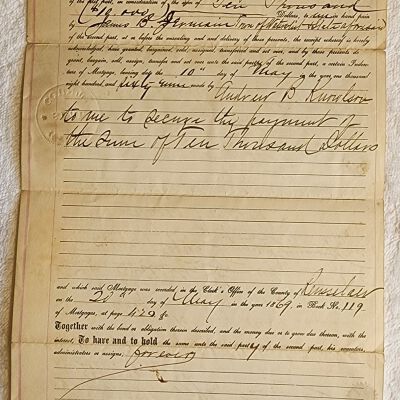 of the first part, in consideration of the sum of Ten Thousand
Dollars, to me in hand paid
James B Jermain Town of
of the second part, at or before the ensealing and and delivery of these presents, the receipt whereof is hereby
acknowledged, have granted, bargained, sold, assigned, transferred and set over, and by these presents do
grant, bargain, sell, assign, transfer and set over unto the said part y of the second part, a certain Inden-
ture of Mortgage, bearing date the 10th day of May in the year one thousand
eight hundred and sixty nine made by Andrew B Knowlson
to me to secure the payment of
the sum of Ten Thousand Dollars
and which said Mortgage was recorded in the Clerk's Office of the County of Rensselaer
on the 20th day of May in the year 1869, in Book No. 119
of Mortgages, at page 429 &c.
Together with the bond or obligation therein described, and the money due or to grow due thereon, with the
interest, To have and to hold the same unto the said part y of the second part, his executors,
administrators or assigns, forever